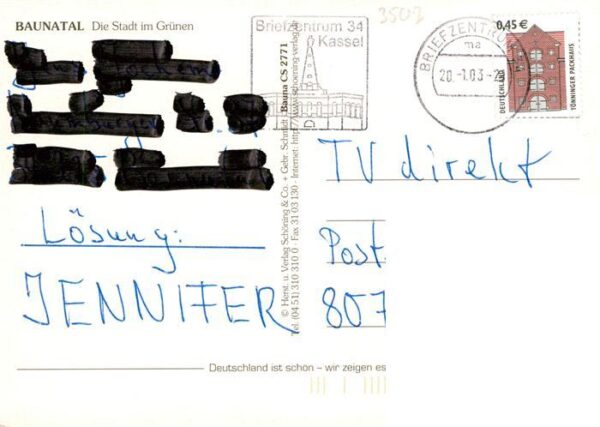 BAUNATAL Die Stadt im Grünen
Briefzentrum 34
Kassel
3503
BRIEFZENTRUM
ma
20.-1.03-2
0,45 €
DEUTSCHLAND
TÖNNINGER PACKHAUS
Bauna CS 2771
© Herst. u. Verlag Schöning & Co. + Gebr. Schmidt
Tel. (04 51) 310 310 0 · Fax 31 03 130 · Internet: http://www.schoening-verlag
TV direkt
Lösung:
JENNIFER
Post
807
Deutschland ist schön – wir zeigen es